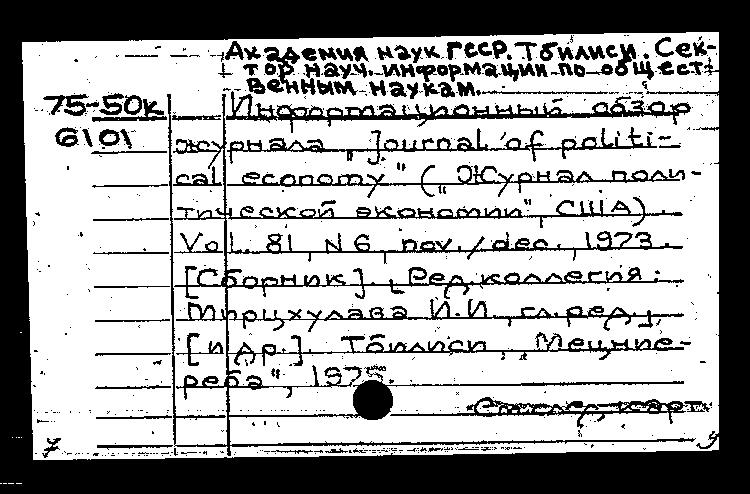 Академия наук ГССР. Тбилиси. Сек-
тор науч. информации по общест-
венным наукам.
75-50к
6101
Информационный обзор
журнала „Journal of politi-
cal economy" („Журнал поли-
тической экономии", США).
Vol. 81, N 6, nov./dec., 1973.
[Сборник]. [Ред.коллегия:
Мирцхулава И.И., гл.ред.,
[и др.]. Тбилиси, „Мецние-
реба", 1975.
См.след.карт.